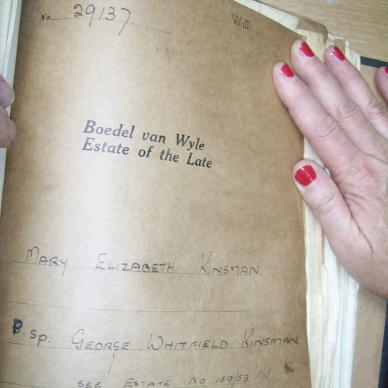 No. 29137
Boedel van Wyle
Estate of the Late
MARY ELIZABETH KINSMAN.
P. Sp. GEORGE WHITFIELD KINSMAN
SEE ESTATE NO